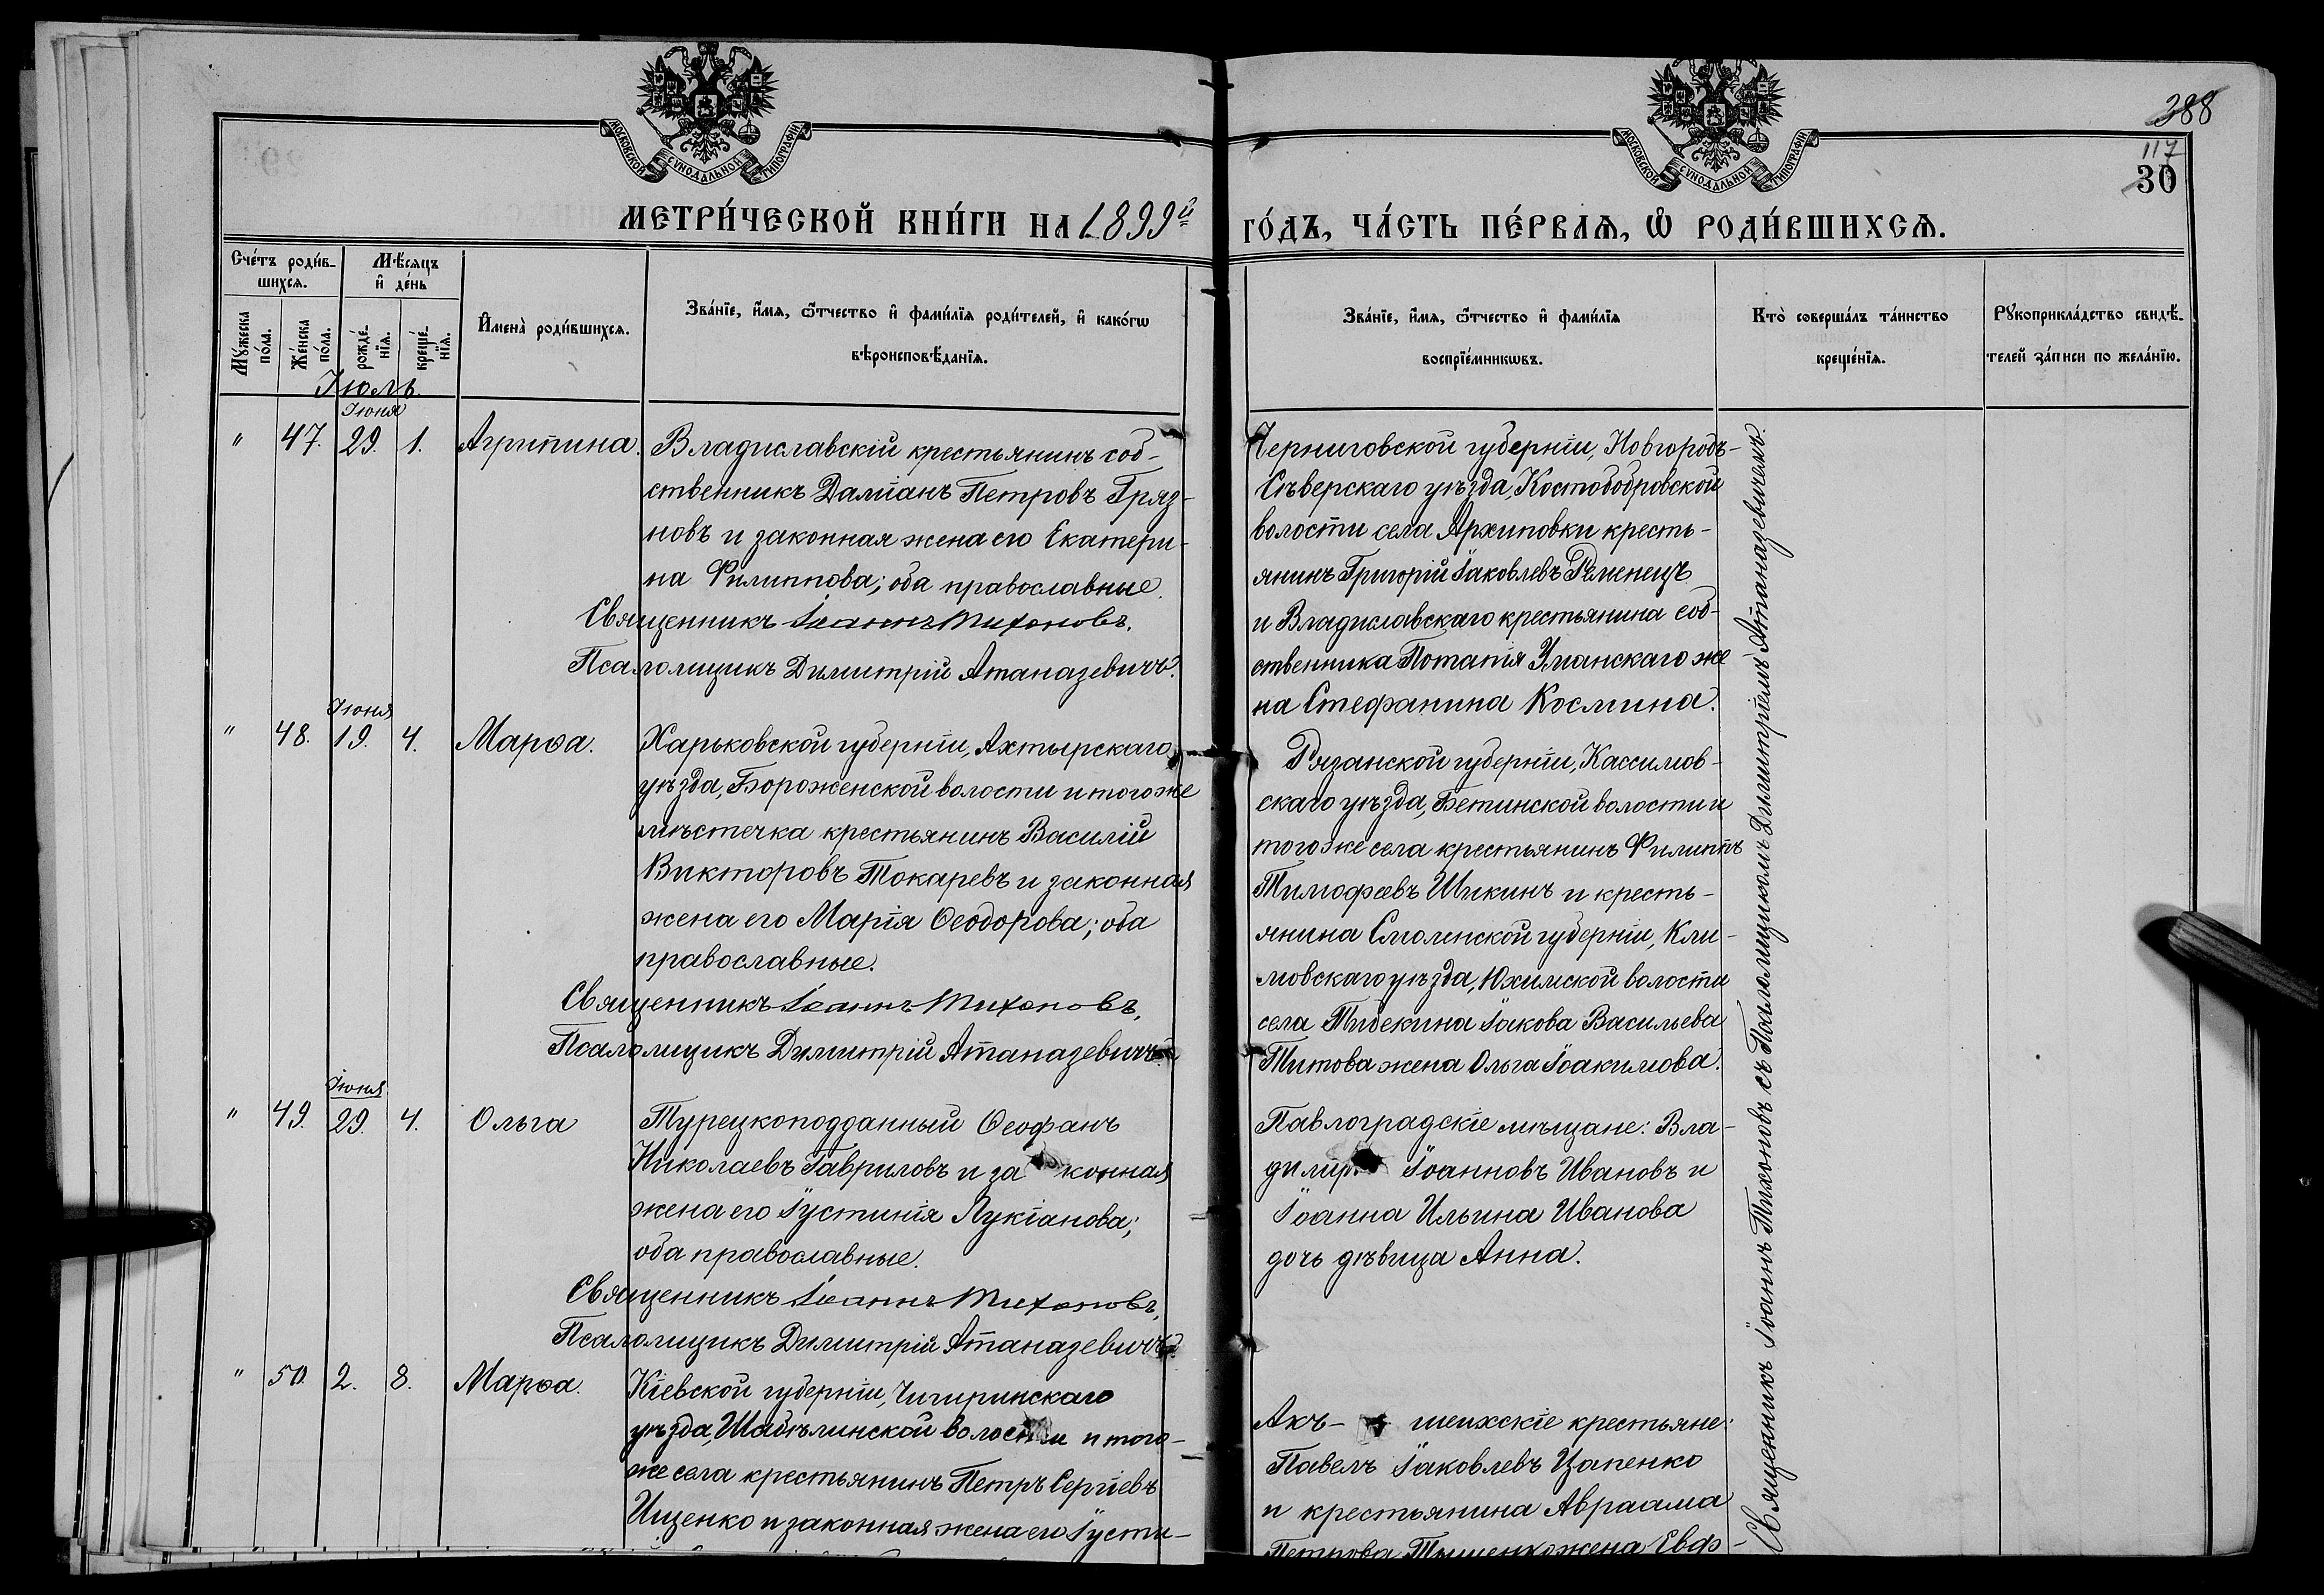 388
117
30
МОСКОВСКОЙ СѴНОДАЛЬНОЙ ТИПОГРАФІИ
МОСКОВСКОЙ СѴНОДАЛЬНОЙ ТИПОГРАФІИ
МЕТРИ́ЧЕСКОЙ КНИ́ГИ НА 1899й
ГО́ДЪ, ЧА́СТЬ ПЕ́РВАѦ, Ѽ РОДИ́ВШИХСѦ.
Счéтъ роди́в-
шихсѧ.
Мѣ́сѧцъ
и҆ дéнь
Мꙋ́жеска
пóла.
Жéнска
пóла.
рождé-
нїѧ.
крещé-
нїѧ.
И҆мена̀ роди́вшихсѧ.
Зва́нїе, и҆́мѧ, ѻ҆́тчество и҆ фами́лїѧ роди́телей, и҆ како́гѡ
вѣроисповѣ́данїѧ.
Зва́нїе, и҆́мѧ, ѻ҆́тчество и҆ фами́лїѧ
воспрїе́мникѡвъ.
Кто̀ соверша́лъ та́инство
креще́нїѧ.
Рꙋкоприкла́дство свидѣ́-
телей за́писи по жела́нїю.
Іюль
Іюня
" 47. 29. 1. Агрипина.
Владиславскій крестьянинъ соб-
ственникъ Даміанъ Петровъ Гряз-
новъ и законная жена его Екатери-
на Филиппова; оба православные.
Священникъ Іоаннъ Тихоновъ.
Псаломщикъ Димитрій Атаназевичъ.
Черниговской губерніи, Новгородъ-
Сѣверскаго уѣзда, Костобобровской
волости села Архиповки кресть-
янинъ Григорій Іаковлевъ Ременецъ
и Владиславскаго крестьянина соб-
ственника Потапія Уманскаго же
на Стефанина Космина.
Іюня
" 48. 19. 4. Марѳа.
Харьковской губерніи, Ахтырскаго
уѣзда, Бороженской волости и того же
мѣстечка крестьянинъ Василій
Викторовъ Токаревъ и законная
жена его Марія Ѳеодорова; оба
православные.
Священникъ Іоаннъ Тихоновъ,
Псаломщикъ Димитрій Атаназевичъ.
Рязанской губерніи, Кассимов-
скаго уѣзда, Бетинской волости и
того же села крестьянинъ Филиппъ
Тимофеевъ Шикинъ и кресть-
янина Смоленской губерніи, Кли-
мовскаго уѣзда, Юхимской волости
села Тидекина Іакова Васильева
Титова жена Ольга Іоакимова.
Іюня
" 49. 29. 4. Ольга
Турецкоподданный Ѳеофанъ
Николаевъ Гавриловъ и за конная
жена его Іустинія Лукіанова;
оба православные.
Священникъ Іоаннъ Тихоновъ,
Псаломщикъ Димитрій Атаназевичъ.
Павлоградскіе мѣщане: Вла-
димір Іоанновъ Ивановъ и
Іоанна Ильина Иванова
дочь дѣвица Анна.
" 50. 2. 8. Марѳа.
Кіевской губерніи, Чигиринскаго
уѣзда, Шабѣлинской волости и того-
же села крестьянинъ Петръ Сергіевъ
Ищенко и законная жена его Іусти-
Акъ- шеихскіе крестьяне:
Павелъ Іаковлевъ Цапенко
и крестьянина Авраама
Петрова жена Евф-
Священникъ Іоаннъ Тихоновъ съ Псаломщикомъ Димитріемъ Атаназевичемъ.